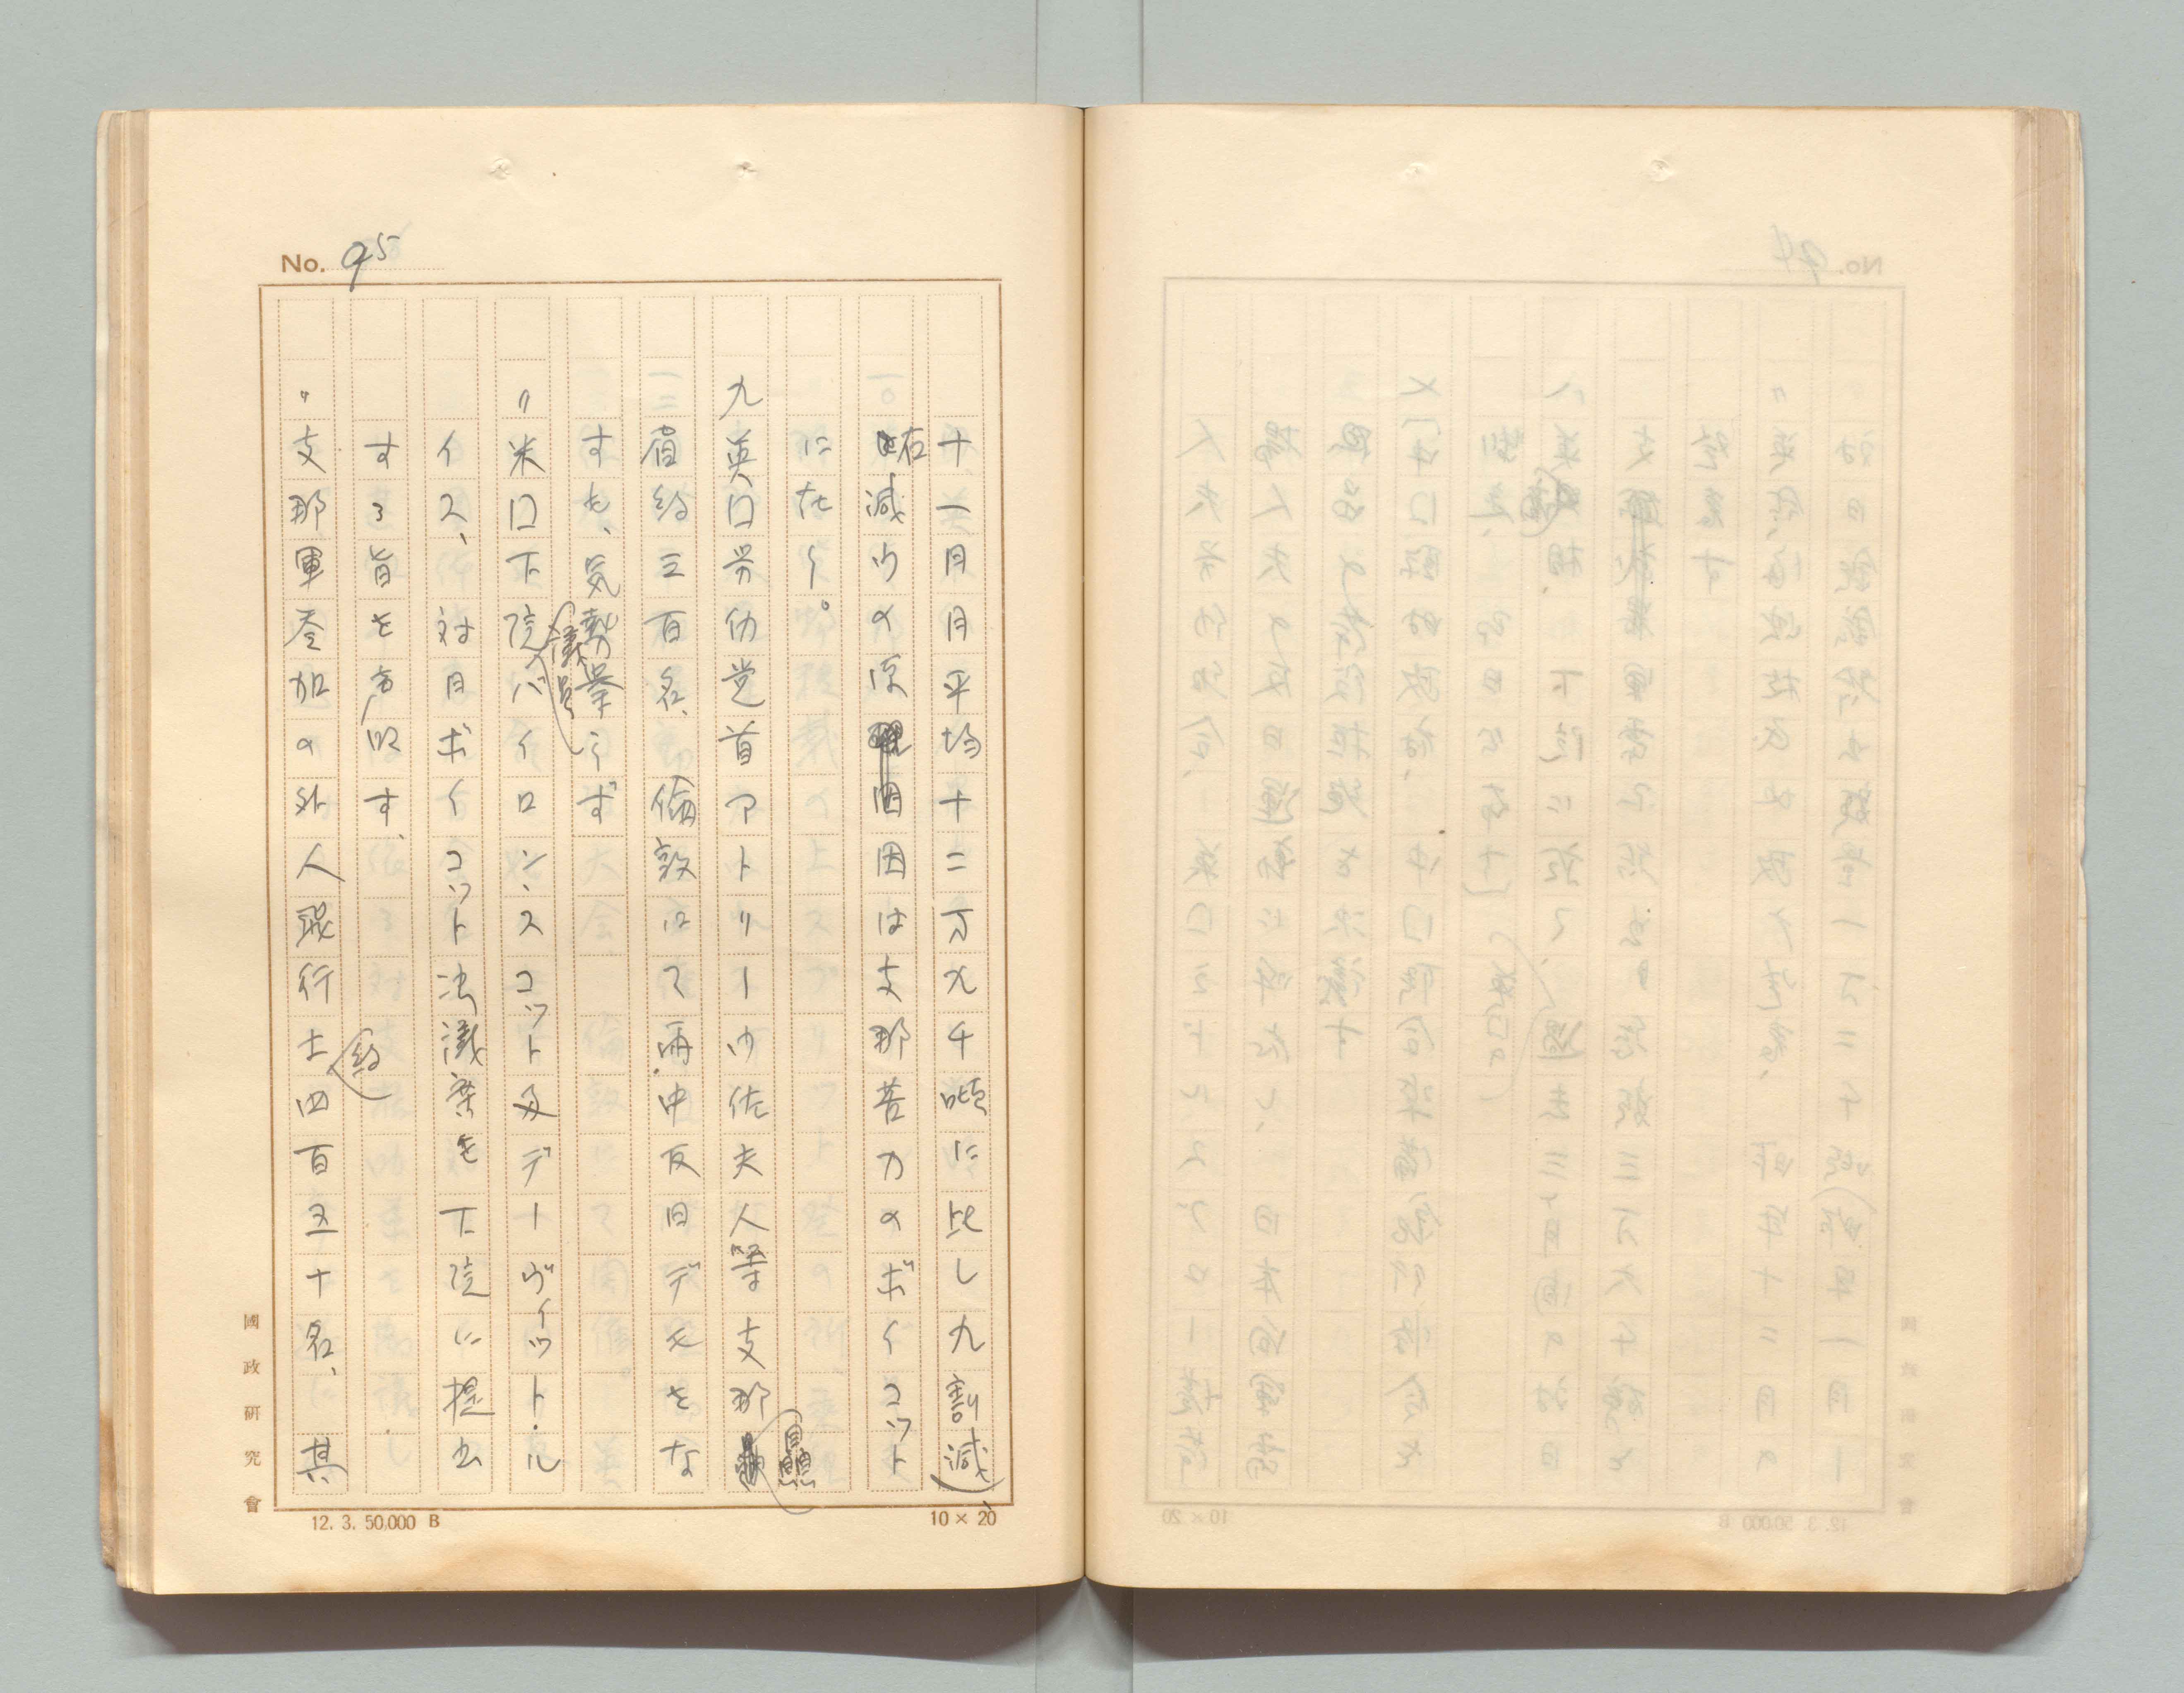 No. 95
十一月月平均十二万九千噸に比し九割減、
右減少の原因は支那苦力のボイコット
に在り。
九 英国労働党首アトリー少佐夫人等支那贔
屓約三百名、倫敦にて雨中反日デモをな
すも、気勢挙らず
〃 米国下院議員バイロン、スコット及デーヴィット・ル
イス、対日ボイコット決議案を下院に提出
する旨を声明す、
〃 支那軍参加の外人飛行士約四百五十名、其
國政研究會
12. 3. 50,000 B
10×20